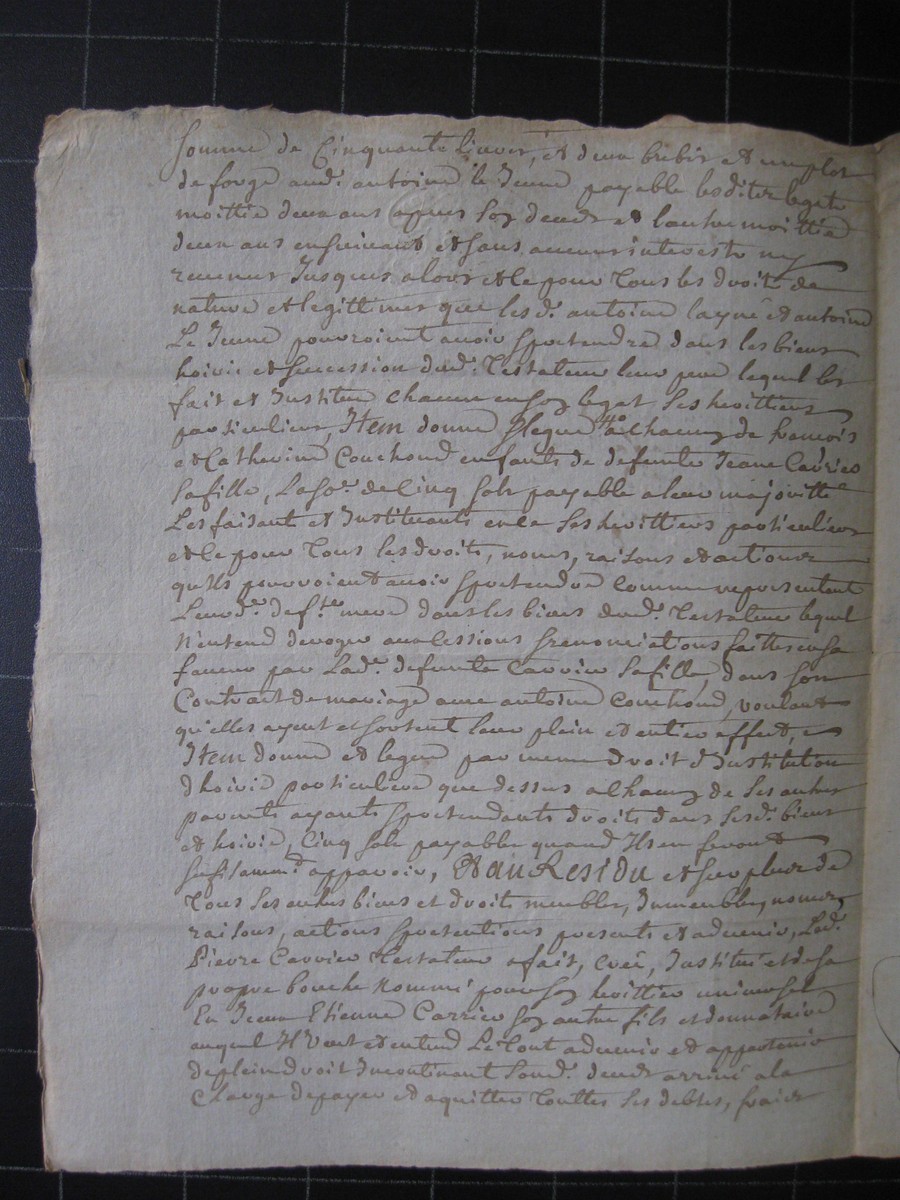 somme de Cinquante livres, et deux brebis et un plot
de forge aud. antoine le Jeune payable lesdites legats
moittié deux ans apres son deces et l'autre moittié
deux ans ensuivant et sans aucuns interests ny
revenus Jusques alors et ce pour Tous les droits de
nature et legittimes que lesd. antoine layné et antoine
Le Jeune pourroient avoir & pretendre dans les biens
hoirie et succession dud. Testateur leur pere lequel les
fait et Institue chacun en son legat ses heritiers
particuliers, Item donne & legue a chacun de francois
et Catherine Couchoud enfants de defunte Jeane Carrier
sa fille, La so.e de Cinq sols payable a leur majoritté
Les faisant et Instituants en ce ses heritiers particuliers
et ce pour Tous les droits, noms, raisons et actions
quils pourroient avoir & pretendre Comme representent
Leurd. def.te mere dans les biens dud. Testateur lequel
N'entend deroger aux Cessions & renonciations faittes en sa
faveur par Lad. defunte Carrier sa fille, dans son
Contract de mariage avec antoine Couchoud, voulant
qu'elles ayent et sortent leur plein et entier effect,
Item donne et legue par meme droit d'Institution
d'hoirie particuliere que dessus a chacun de ses autres
parents ayants & pretendants droits dans sesd. biens
et hoirie, Cinq sols payables quand Ils en feront
sufisamm.t apparoir, Et au Residu et surplus de
Tous ses autres biens et droits meubles, Immeubles, noms,
raisons, actions & pretentions presents et advenir, Led.
Pierre Carrier Testateur a fait, creé, Institué et de sa
propre bouche Nommé pour son heritier universel
En Jean Etienne Carrier son autre fils et donnataire
auquel Il Veut et entend Le Tout advenir et appartenir
de plein droit Incontinant sond. deces arrivé a la
Charge de payer et aquitter Touttes ses debtes, fraix